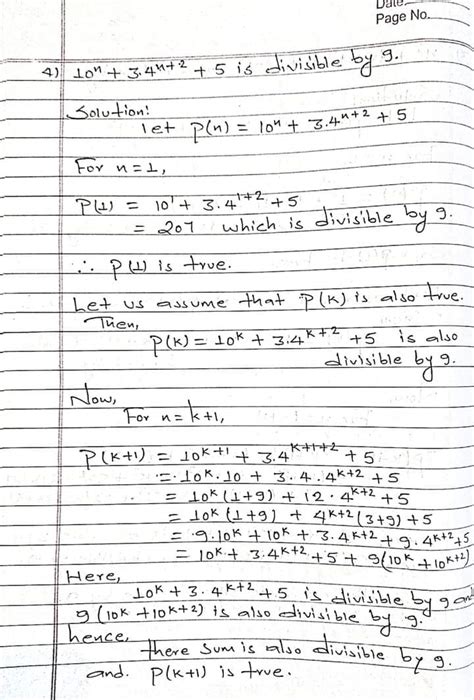 Date.
Page No.
4) 10ⁿ + 3.4ⁿ⁺² + 5 is divisible by 9.
Solution:
let P(n) = 10ⁿ + 3.4ⁿ⁺² + 5
For n=1,
P(1) = 10¹ + 3.4¹⁺² + 5
= 207 which is divisible by 9.
∴ P(1) is true.
Let us assume that P(k) is also true.
Then,
P(k) = 10ᵏ + 3.4ᵏ⁺² + 5 is also
divisible by 9.
Now,
For n=k+1,
P(k+1) = 10ᵏ⁺¹ + 3.4ᵏ⁺¹⁺² + 5
= 10ᵏ.10 + 3.4.4ᵏ⁺² + 5
= 10ᵏ (1+9) + 12.4ᵏ⁺² + 5
= 10ᵏ (1+9) + 4ᵏ⁺² (3+9) + 5
= 9.10ᵏ + 10ᵏ + 3.4ᵏ⁺² + 9.4ᵏ⁺² + 5
= 10ᵏ + 3.4ᵏ⁺² + 5 + 9(10ᵏ + 10ᵏ⁺²)
Here,
10ᵏ + 3.4ᵏ⁺² + 5 is divisible by 9 and
9(10ᵏ + 10ᵏ⁺²) is also divisible by 9.
hence,
there sum is also divisible by 9.
and. P(k+1) is true.